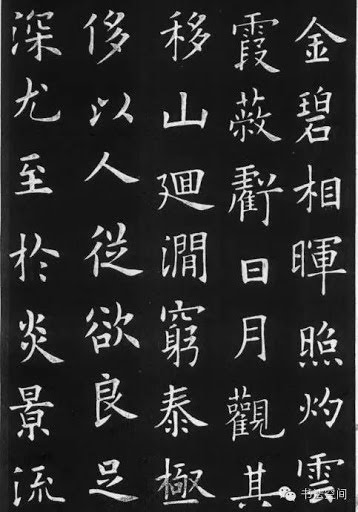 金碧相暉照灼雲
霞蔽虧日月觀其
移山廻澗窮泰極
侈以人從欲良足
深尤至於炎景流
书法空间